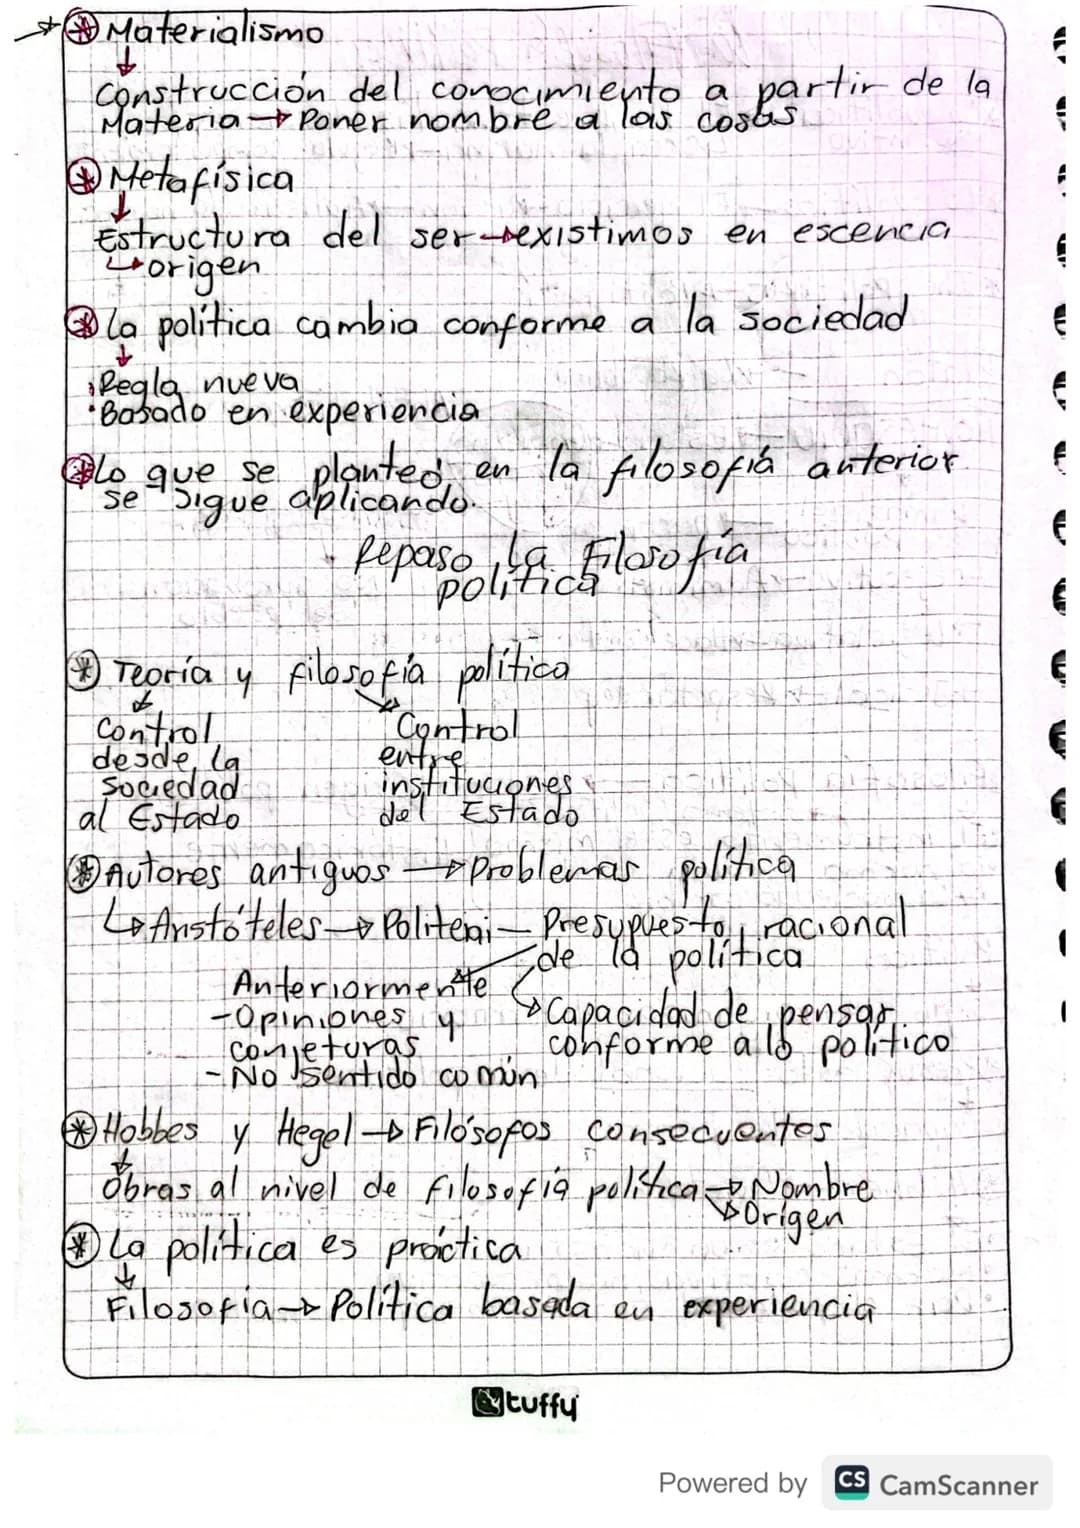 Materialismo
Construcción del conocimiento a partir de la
Materia → Poner nombre a las cosas
Metafísica
Estructura del ser → existimos en escencia
origen
La política cambia conforme a la sociedad
Regla nueva
Basado en experiencia
Lo que se planteó en la filosofía anterior
se sigue aplicando.
Repaso la Filosofía
política
Teoría y filosofía política
Control
desde la
sociedad
al Estado
Control
entre
instituciones
del Estado
Autores antiguos → Problemas política
Aristóteles → – Presupuesto racional
de la política
Anteriormente
- Opiniones y
conjeturas
- No sentido común
Capacidad de pensar
conforme a lo político
Hobbes y Hegel → Filósofos consecuentes
Obras al nivel de filosofía política → Nombre
Origen
La política es práctica
Filosofía → Política basada en experiencia
tuffy
Powered by CS CamScanner